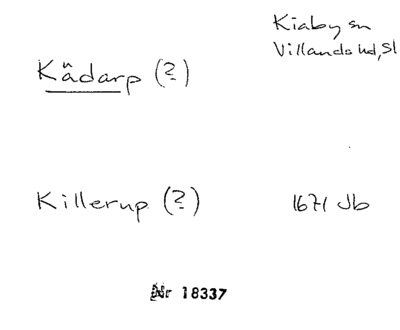 Kiaby sn
Villands hd, Sl
Kådarp (?)
Killerup (?)
1671 Jb
Nr 18337